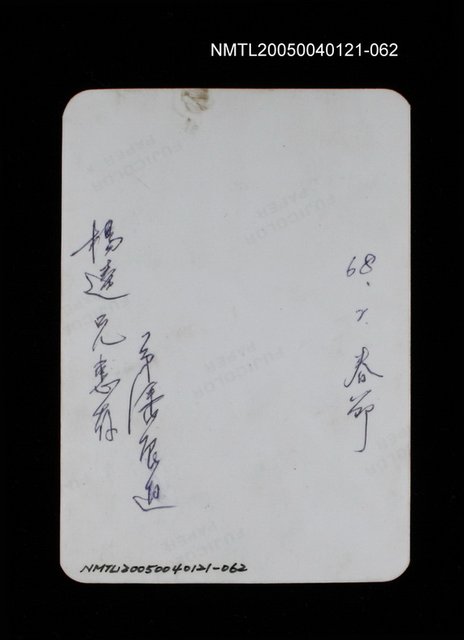 NMTL20050040121-062
楊逵兄惠存
弟
68. 2. 春節
NMTL20050040121-062